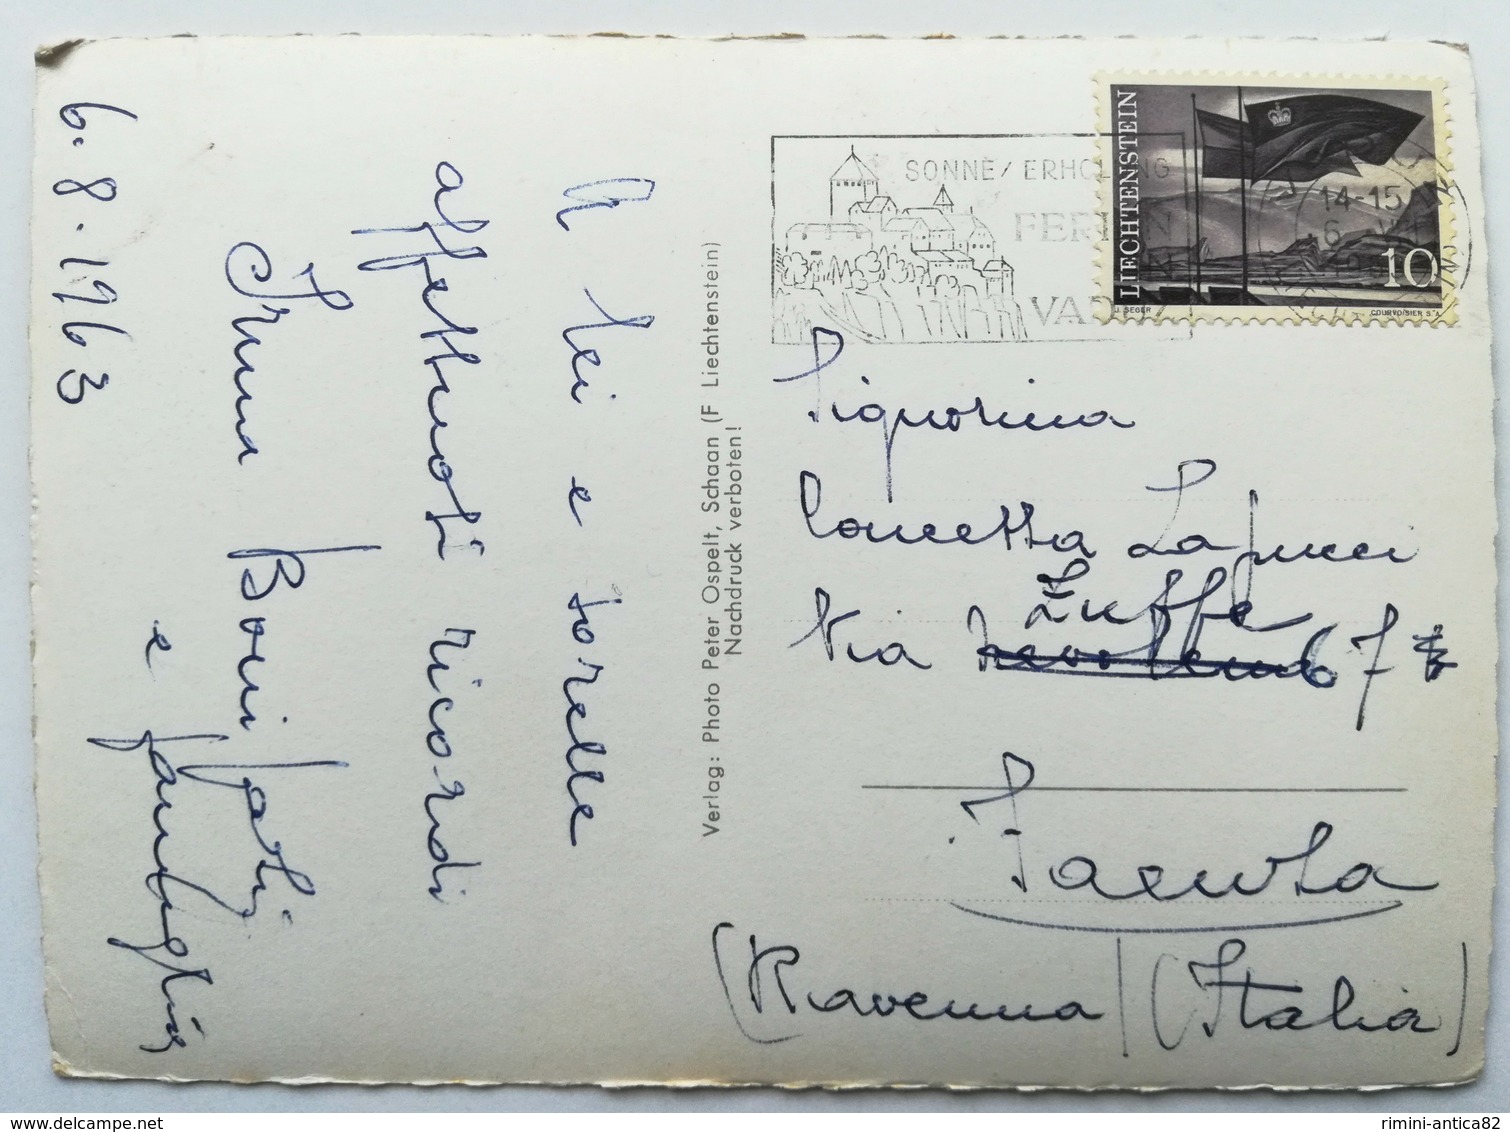 6.8.1963
A lei e sorelle
affettuosi ricordi
Irma Bonifati
e famiglia
Verlag: Photo Peter Ospelt, Schaan (F Liechtenstein)
Nachdruck verboten!
SONNE/ ERHOLUNG
FERIEN
IN
VADUZ
LIECHTENSTEIN
10
J. SEGER
COURVOISIER S.A.
14-15
6
Signorina
Concetta Lapucci
Zuffe
Via 67
Faenza
(Ravenna) (Italia)
rimini-antica82